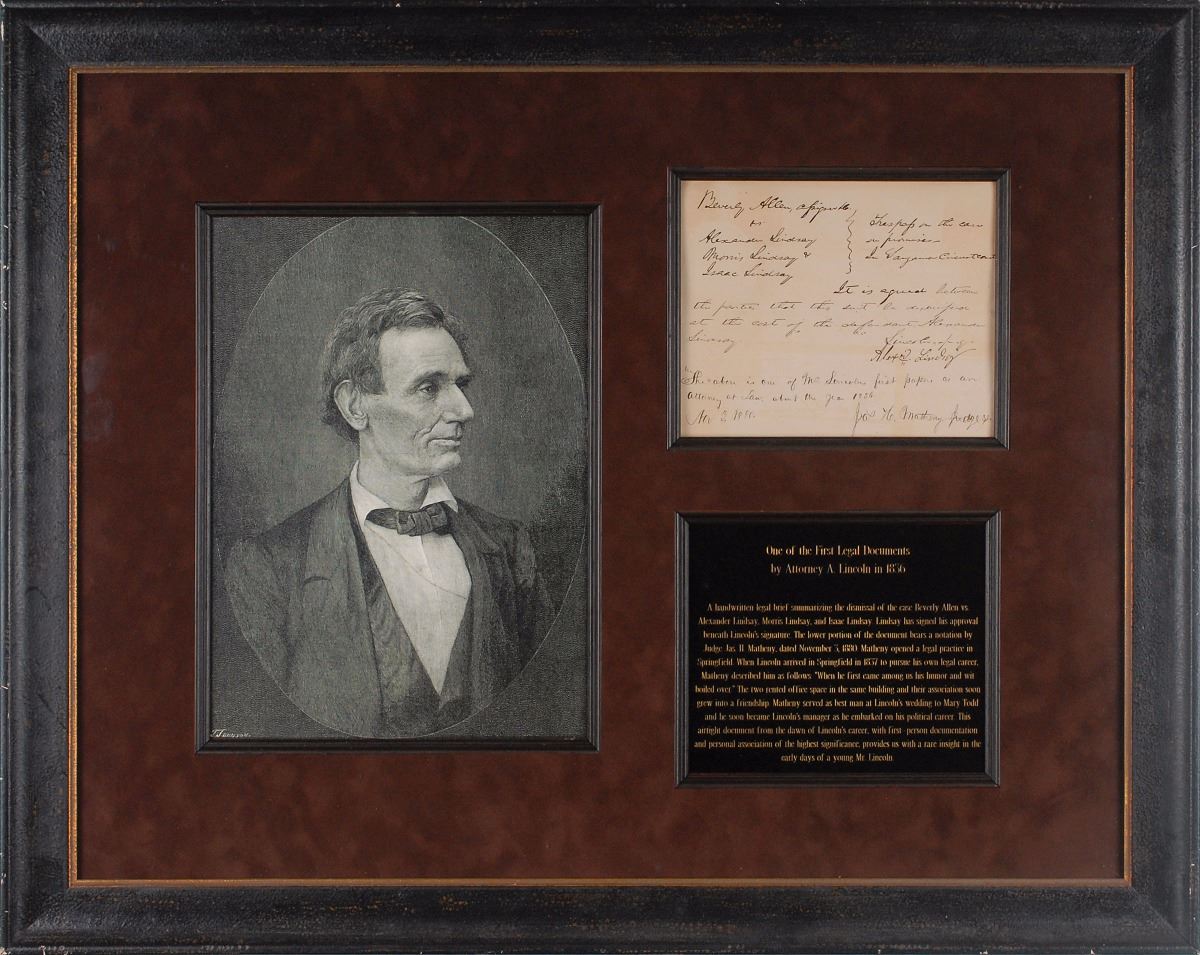 Beverly Allen, assignee &c.
vs
Alexander Lindsay
Morris Lindsay &
Isaac Lindsay
Trespass on the case
on promises—
In Sangamon Circuit Court
It is agreed between
the parties that this suit be dismissed
at the cost of the defendant Alexander
Lindsay
Alexr. Lindsay
The above is one of Mr Lincolns first papers as an
Attorney at Law, about the year 1836
Nov 3, 1880. Jas. H. Matheny Judge &c
T. Johnson.
One of the First Legal Documents
by Attorney A. Lincoln in 1836
A handwritten legal brief summarizing the dismissal of the case Beverly Allen vs.
Alexander Lindsay, Morris Lindsay, and Isaac Lindsay. Lindsay has signed his approval
beneath Lincoln's signature. The lower portion of the document bears a notation by
Judge Jas. H. Matheny, dated November 3, 1880. Matheny opened a legal practice in
Springfield. When Lincoln arrived in Springfield in 1837 to pursue his own legal career,
Matheny described him as follows: "When he first came among us his humor and wit
boiled over." The two rented office space in the same building and their association soon
grew into a friendship. Matheny served as best man at Lincoln's wedding to Mary Todd
and he soon became Lincoln's manager as he embarked on his political career. This
airtight document from the dawn of Lincoln's career, with first-person documentation
and personal association of the highest significance, provides us with a rare insight in the
early days of a young Mr. Lincoln.